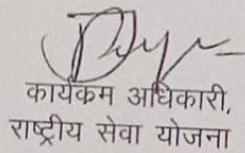 कार्यकम अधिकारी,
राष्ट्रीय सेवा योजना